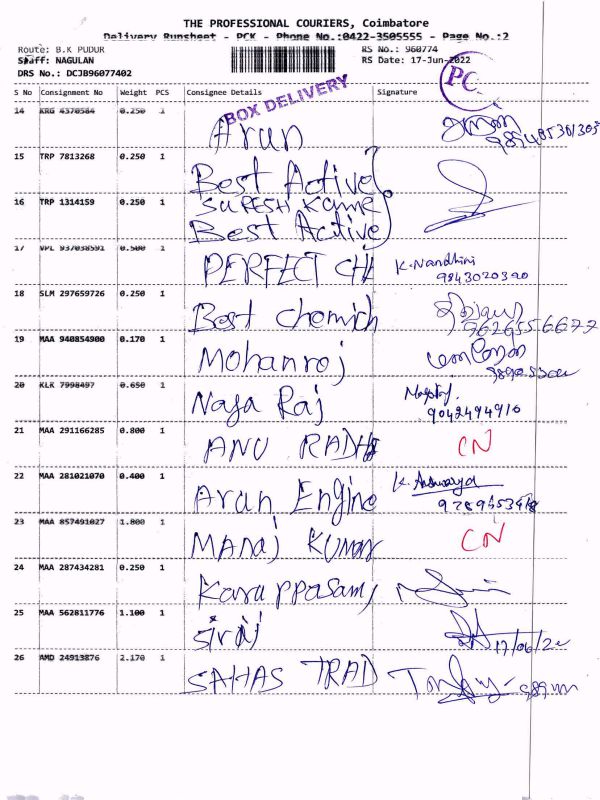 THE PROFESSIONAL COURIERS, Coimbatore
Delivery Runsheet - PCK - Phone No.:0422-3505555 - Page No.:2
Route: B.K PUDUR RS No.: 960774
Staff: NAGULAN RS Date: 17-Jun-2022
DRS No.: DCJB96077402
PC
S No Consignment No Weight PCS Consignee Details Signature
BOX DELIVERY
14 KRG 4370584 0.250 1 Arun
15 TRP 7813268 0.250 1 Best Active
16 TRP 1314159 0.250 1 SURESH Kume
Best Active
17 VPL 937038591 0.500 1 PERFECT CHE K. Nandhini
9843020390
18 SLM 297659726 0.250 1 Best Chemich
7626556677
19 MAA 940854900 0.170 1 Mohanroj
20 KLK 7998497 0.650 1 Naga Raj
9042494910
21 MAA 291166285 0.800 1 ANU RADHA CN
22 MAA 281021070 0.400 1 Arun Engine K. Aishwarya
23 MAA 857491027 1.800 1 MANOJ KUMAR CN
24 MAA 287434281 0.250 1 Karuppasamy
25 MAA 562811776 1.100 1 Siraj 17/06/22
26 AMD 24913876 2.170 1 SAHAS TRAD